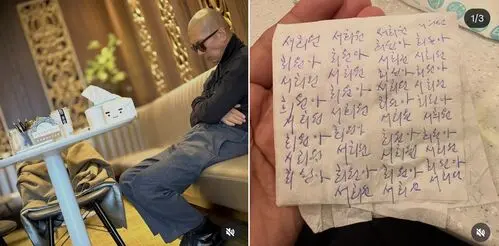 1/3
서희원
희원아
서희원
희원아
서희원
희원아
서희원
희원아
서희원
희원아
서희원
희원아
서희원
희원아
서희원
희원아
서희원
서희원
희원아
서희원
희원아
서희원
희원아
서희원
희원아
서희원
희원아
서희원
희원아
서희원
희원아
서희원
희원아
서희원
희원아
서희원
희원아
서희원